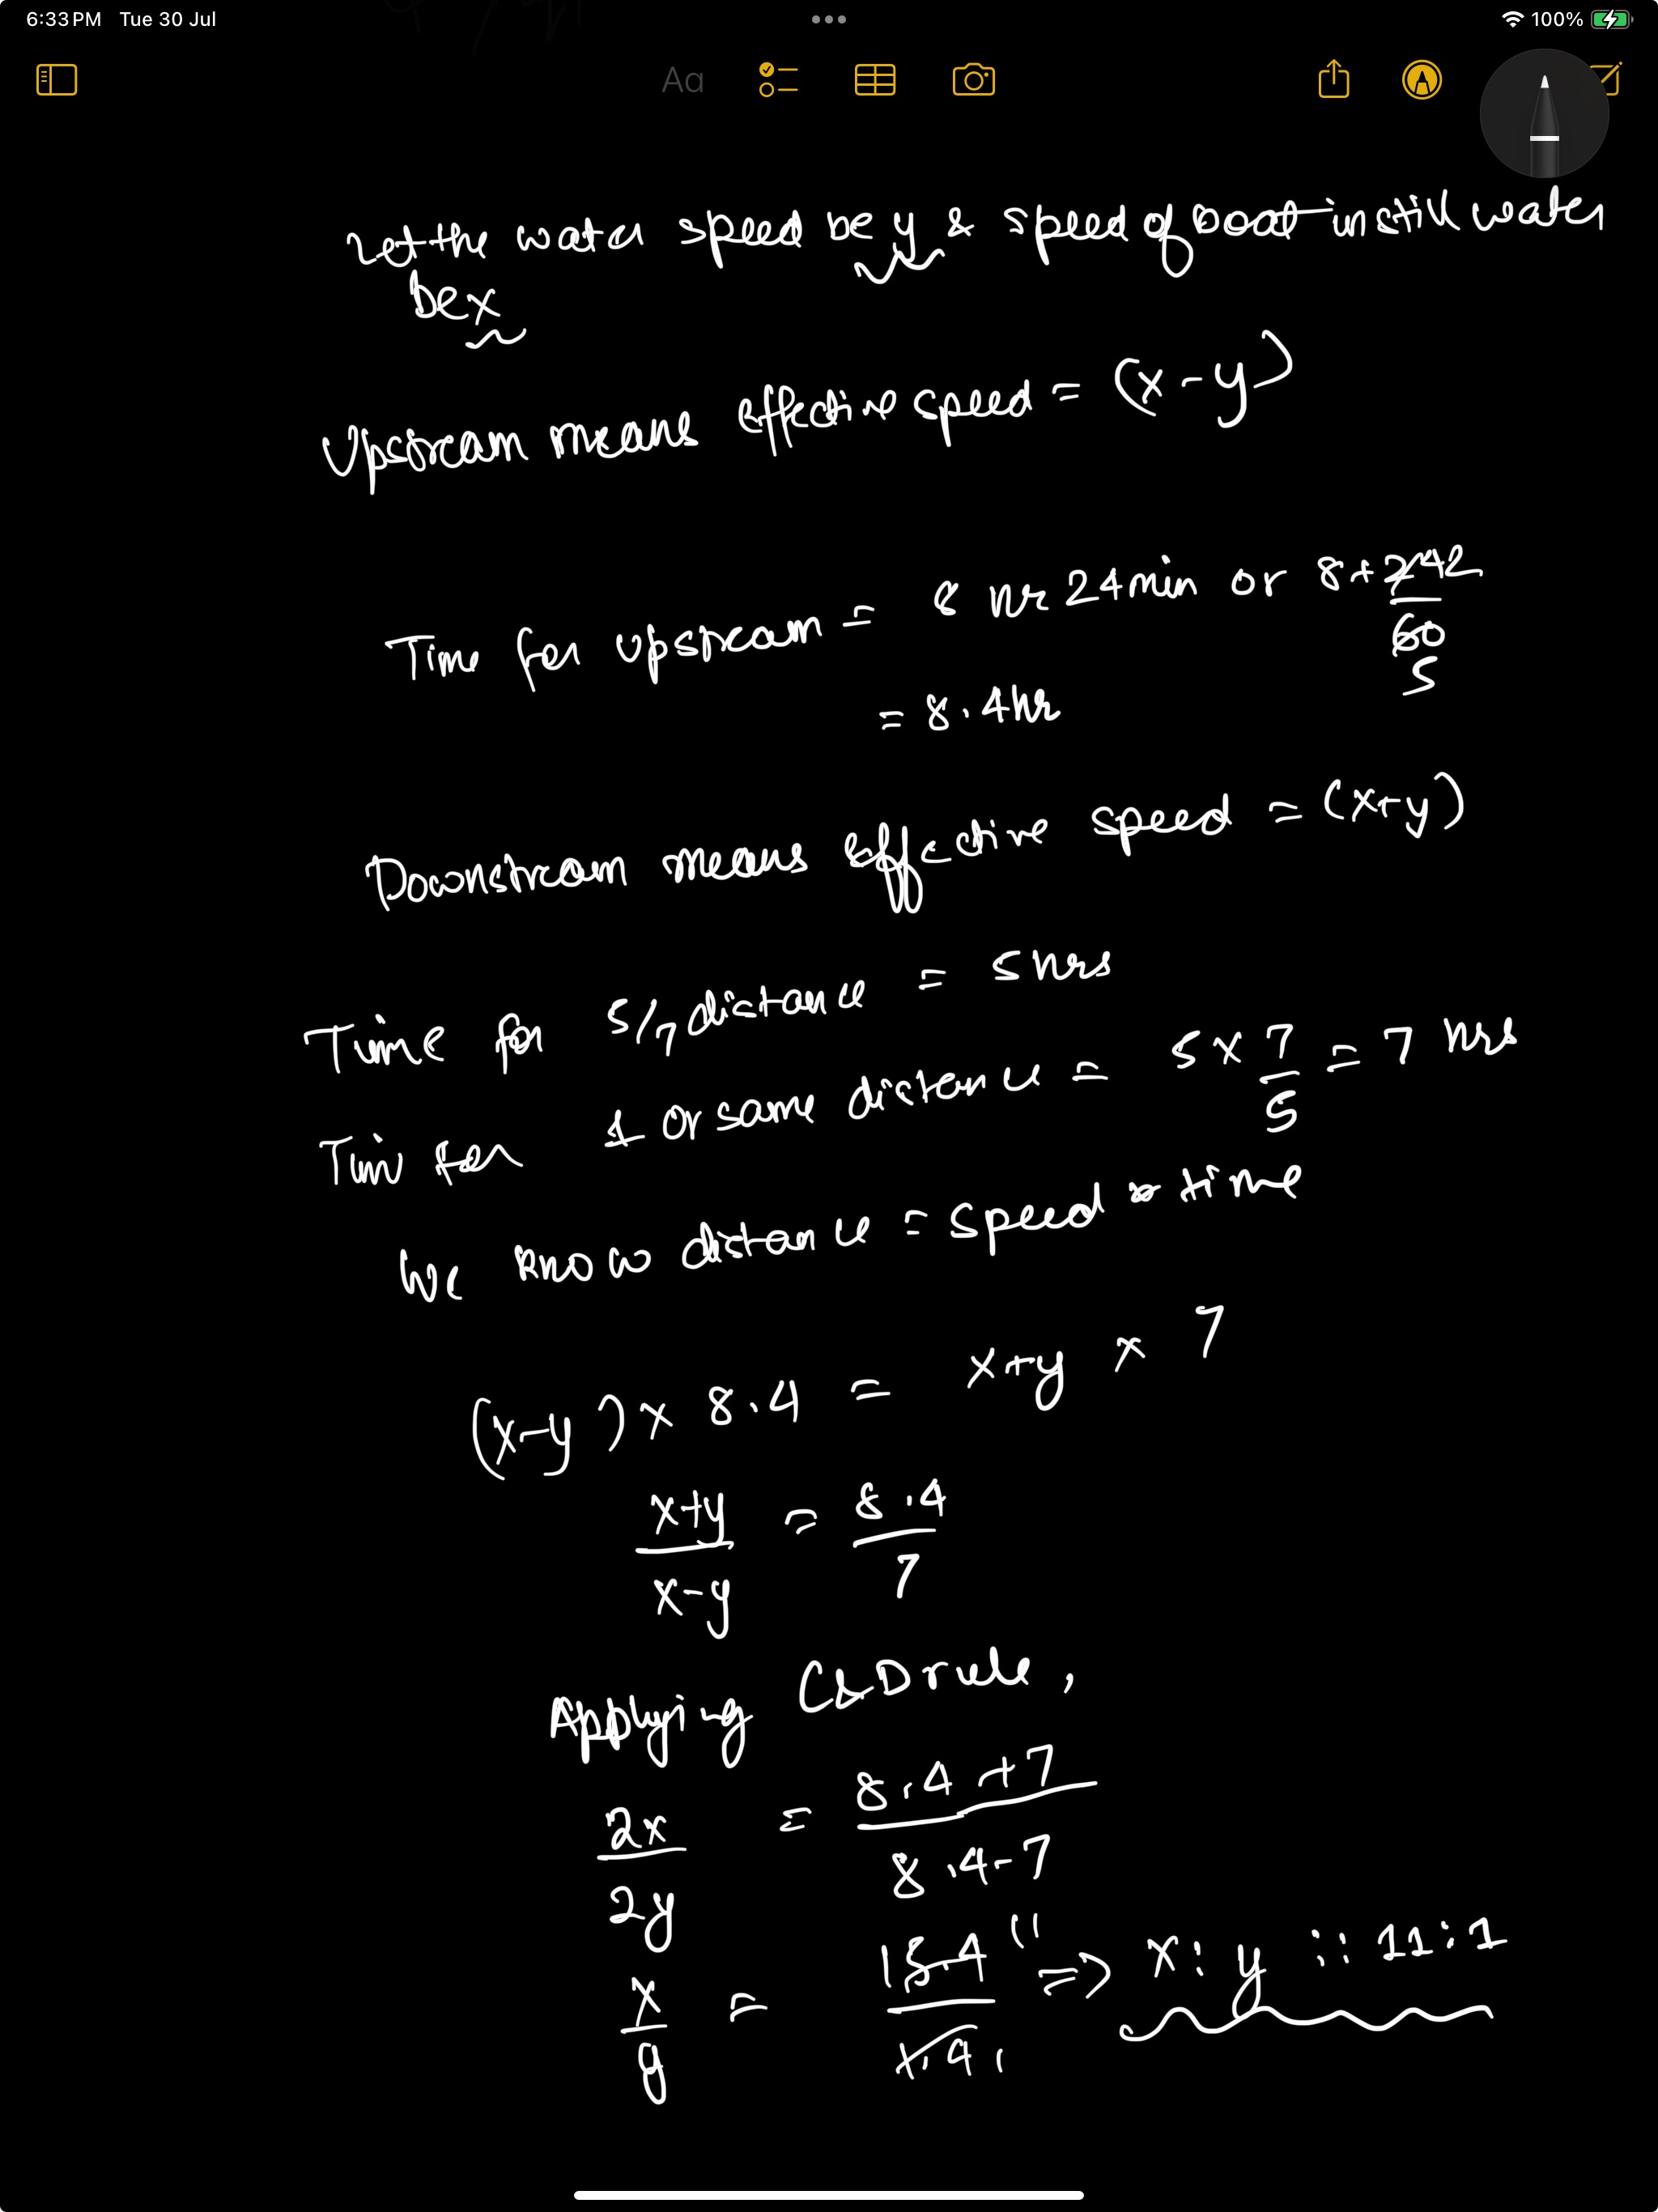 6:33 PM Tue 30 Jul
100%
Aa
Let the water speed be y & speed of boat in still water
be x
Upstream means effective speed = (x-y)
Time for upstream = 8 hr 24 min or 8+24 2/60 5
= 8.4 hr
Downstream means effective speed = (x+y)
Time for 5/7 distance = 5 hrs
Time for 1 or same distance = 5 × 7/5 = 7 hrs
We know distance = speed × time
(x-y) × 8.4 = x+y × 7
x+y/x-y = 8.4/7
Applying C&D rule,
2x/2y = 8.4+7/8.4-7
x/y = 15.4 11/1.4 1 => x:y :: 11:1